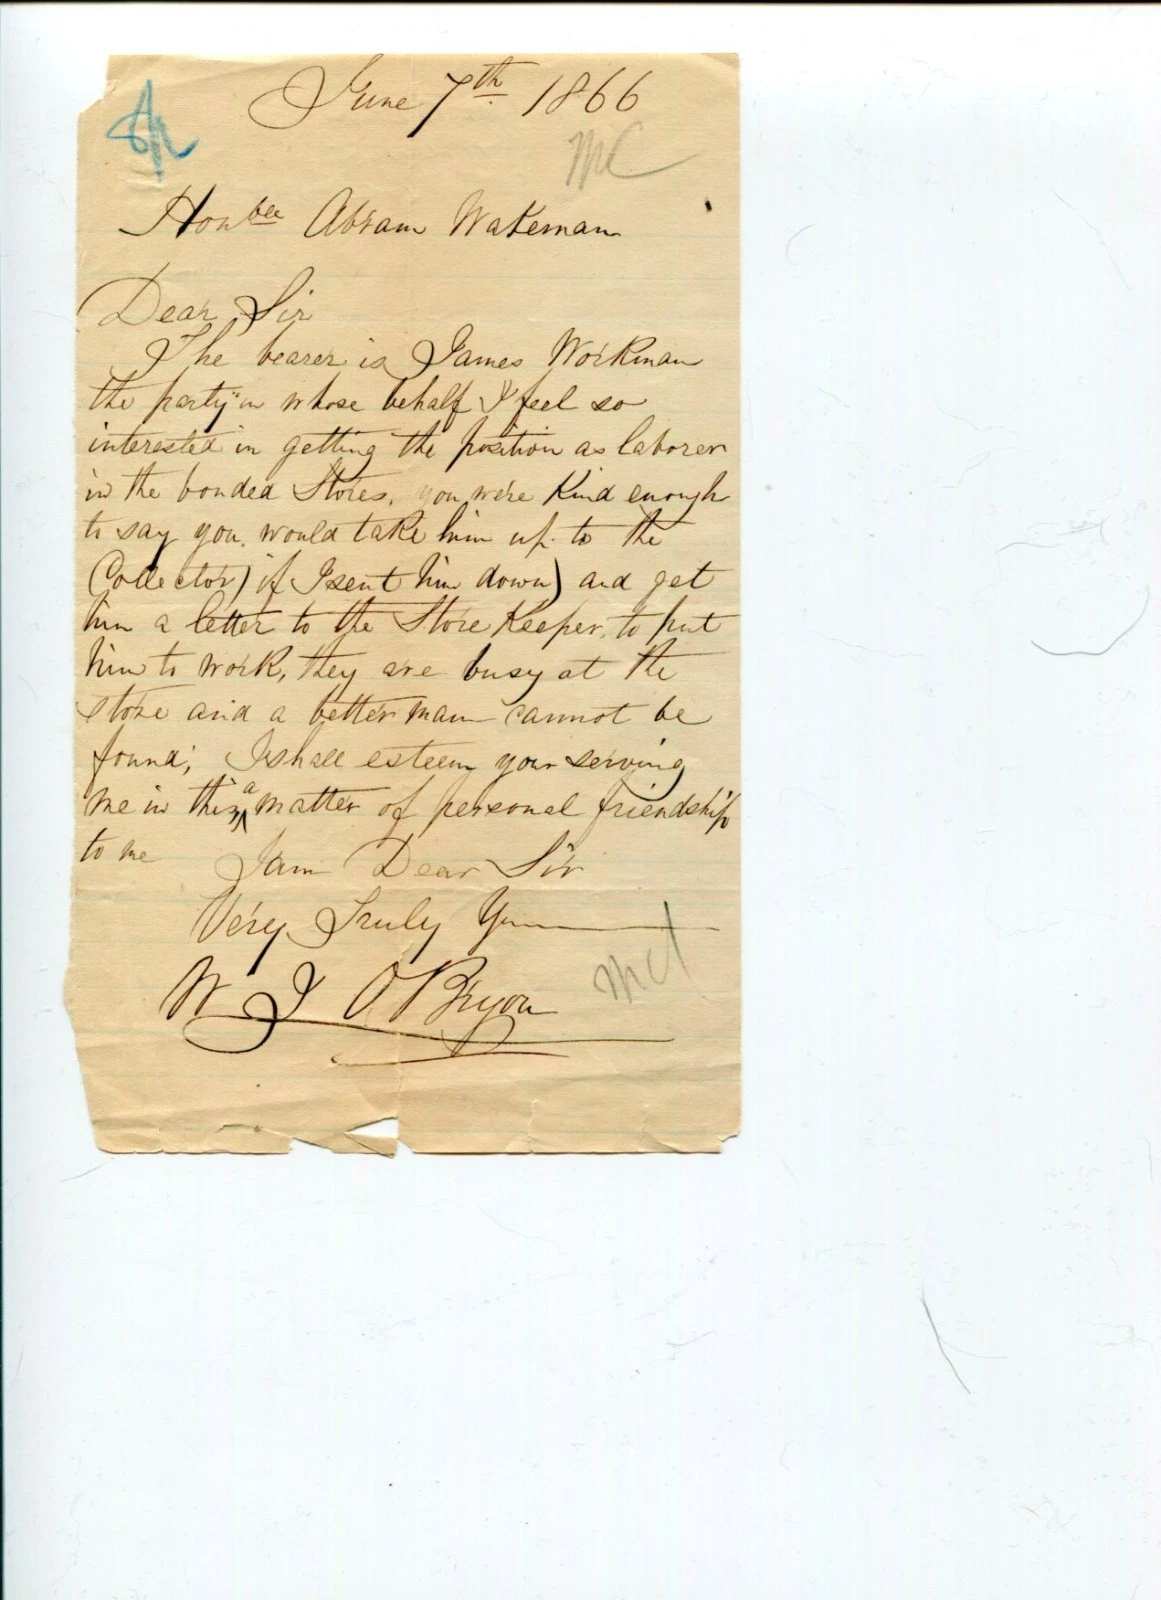 June 7th 1866
Honble Abram Wakeman
Dear Sir
The bearer is James Workman
the party in whose behalf I feel so
interested in getting the position as laborer
in the bonded Stores, you were kind enough
to say you would take him up to the
(Collector) if I sent him down) and get
him a letter to the Store Keeper, to put
him to work, they are busy at the
store and a better man cannot be
found; I shall esteem your serving
me in this a matter of personal friendship
to me
I am Dear Sir
Very Truly Yours
W J O'Bryon